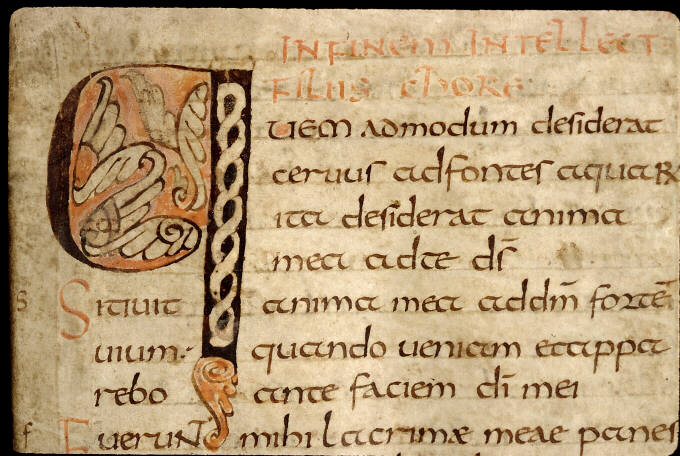 IN FINEM INTELLECT
FILIIS CHORE
QUEM admodum desiderat
ceruus ad fontes aquaRx
ita desiderat anima
mea ad te ds̄
S Sitiuit anima mea ad dm̄ fortē
uiuum: quando ueniam et appa
rebo ante faciem dī mei
f FueruNt mihi lacrimæ meae panes